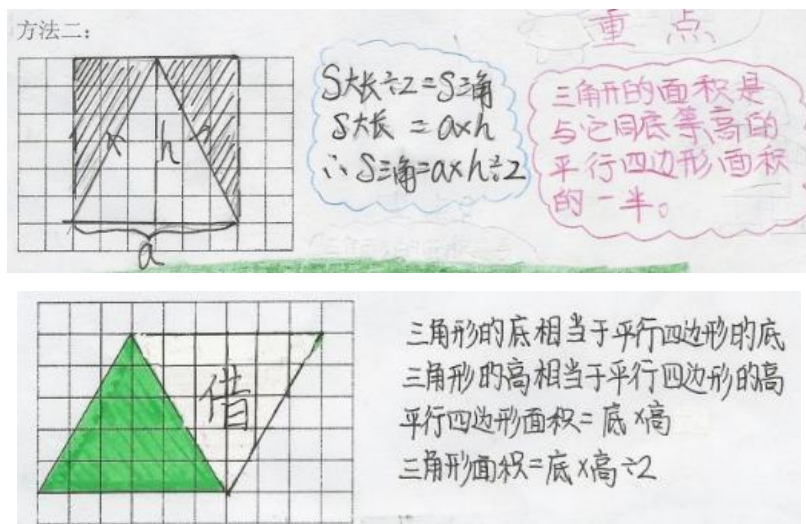 方法二：
重点
S大长÷2=S三角
S大长 = a×h
∴S三角=a×h÷2
三角形的面积是
与它同底等高的
平行四边形面积
的一半。
h
a
借
三角形的底相当于平行四边形的底
三角形的高相当于平行四边形的高
平行四边形面积=底×高
三角形面积=底×高÷2